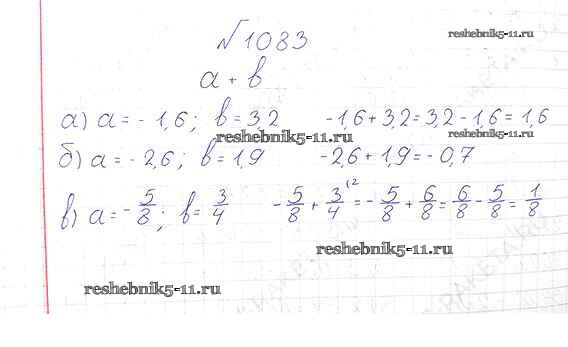 №1083
reshebnik5-11.ru
a + b
а) a = - 1,6; b = 3,2 -1,6 + 3,2 = 3,2 - 1,6 = 1,6
reshebnik5-11.ru
reshebnik5-11.ru
б) a = - 2,6; b = 1,9 -2,6 + 1,9 = - 0,7
в) a = - 5/8; b = 3/4 - 5/8 + 3/4 ⁽² = - 5/8 + 6/8 = 6/8 - 5/8 = 1/8
reshebnik5-11.ru
reshebnik5-11.ru